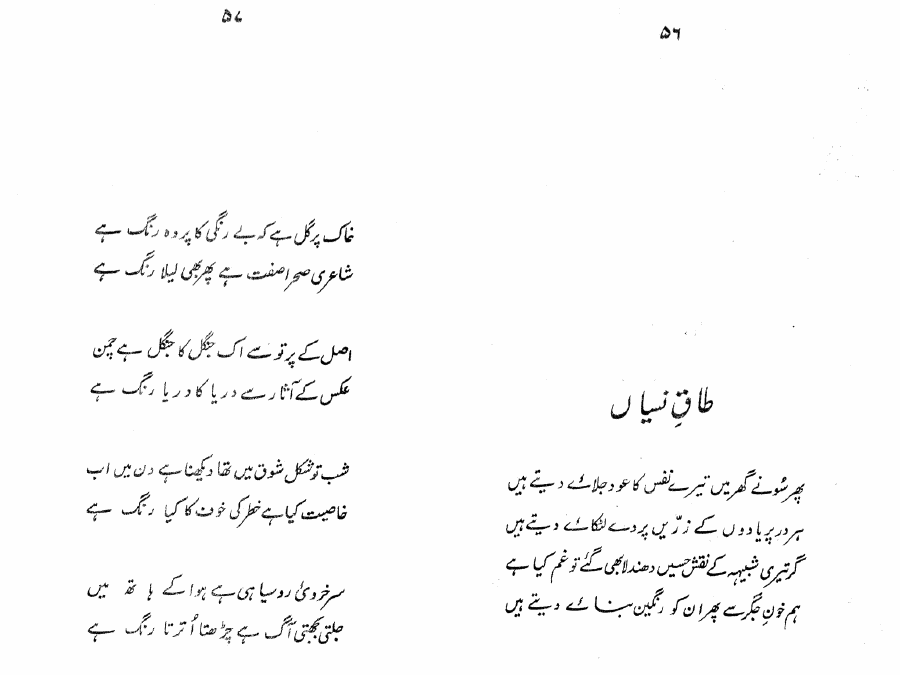 ۵۶
طاقِ نسیاں
پھر سُونے گھر میں تیرے نفس کا عود جلائے دیتے ہیں
ہر در پر یادوں کے زرّیں پردے لٹکائے دیتے ہیں
گر تیری شبیہہ کے نقش حسیں دھندلا بھی گئے تو غم کیا ہے
ہم خونِ جگر سے پھر ان کو رنگین بنائے دیتے ہیں
۵۷
خاک پر گل ہے کہ بے رنگی کا پردہ رنگ ہے
شاعری صحرا صفت ہے پھر بھی لیلا رنگ ہے
اصل کے پرتو سے اک جنگل کا جنگل ہے چمن
عکس کے آثار سے دریا کا دریا رنگ ہے
شب تو شکل شوق میں تھا دیکھنا ہے دن میں اب
خاصیت کیا ہے خطر کی خوف کا کیا رنگ ہے
سرخروئی روسیاہی ہے ہوا کے ہاتھ میں
جلتی بجھتی آگ ہے چڑھتا اُترتا رنگ ہے